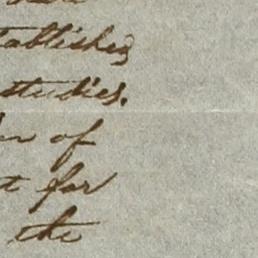 tablished
studies.
of
for
the